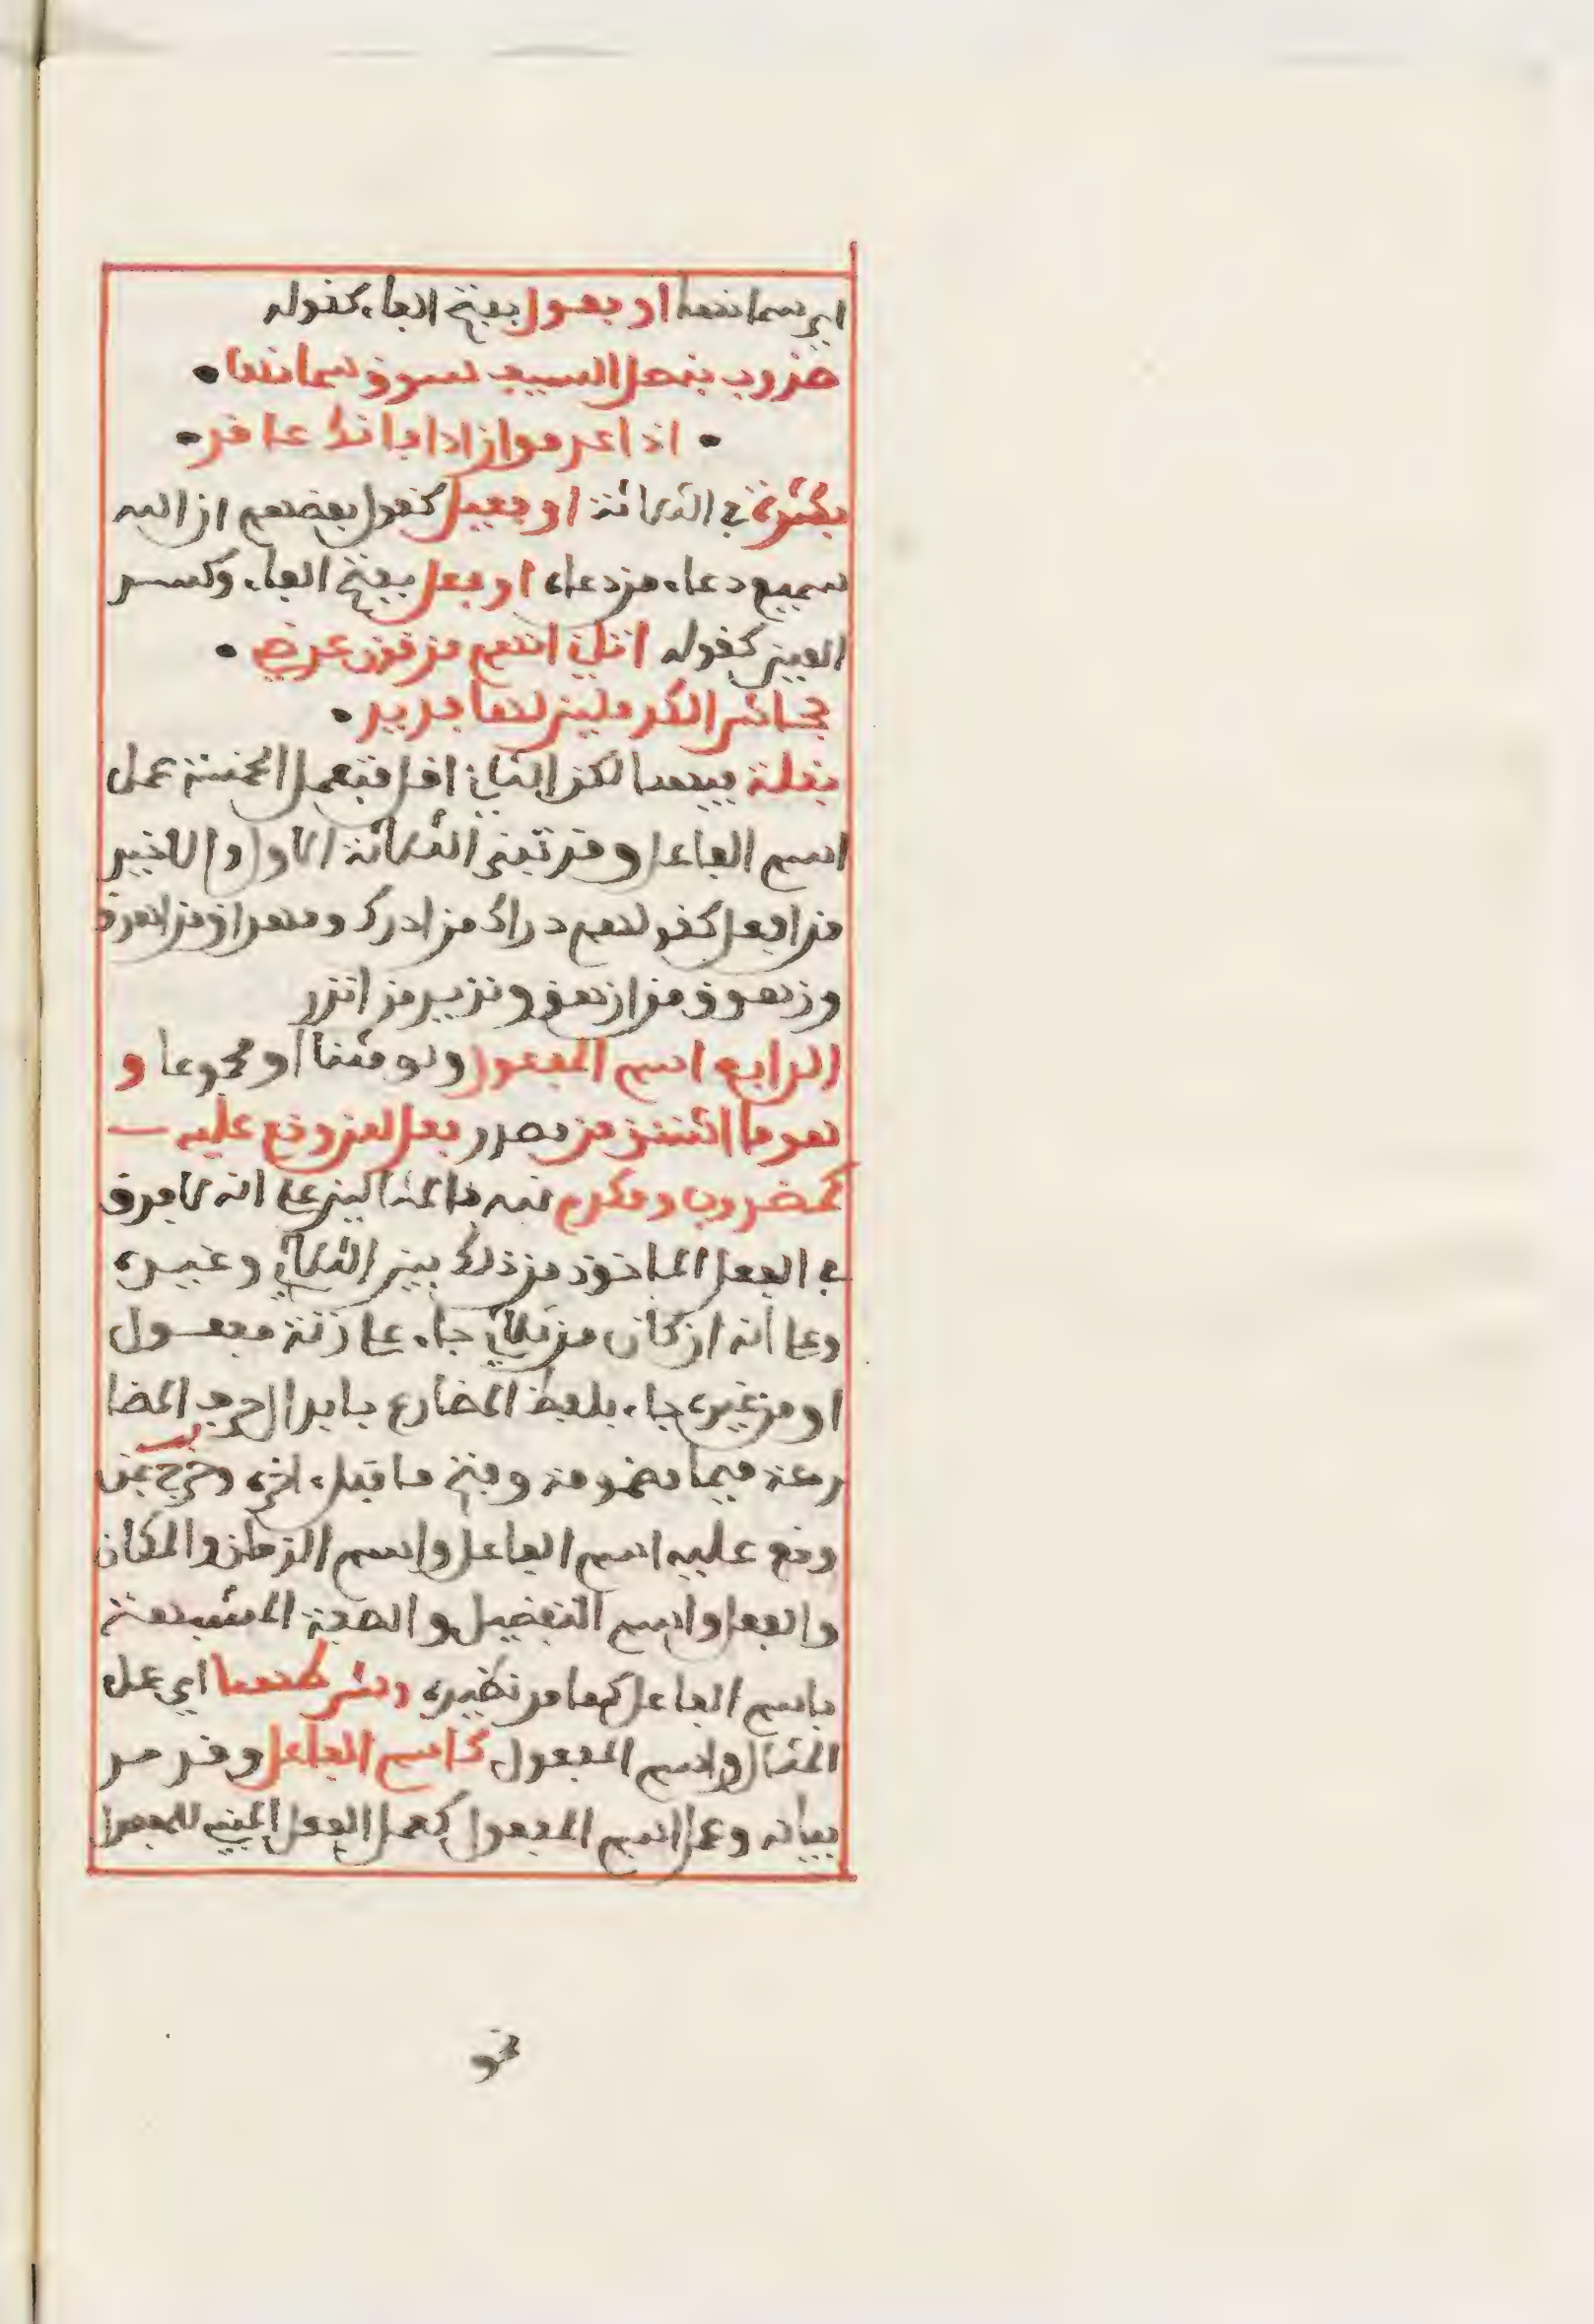 اي سمانها او بعول بفتح الفاء كقوله
ضروب بنصل السيف سوق سمانها •
• اذا عدموا زادا فانك عاقر •
بكثرة في الثلاثة او فعيل كقول بعضهم ان الله
سميع دعاء من دعاه او فعل بفتح الفاء وكسر
العين كقوله اتاني انهم مزقون عرضي •
جحاش الكرملين لها فديد •
بقلة فيهما لكن الثاني اقل فتعمل الخمسة عمل
اسم الفاعل وقد تبنى الثلاثة الاول والاخير
من افعل كقولهم دراك من ادرك ومهراق من اهرق
وزهوق من ازهق ونزير من انزر
الرابع اسم المفعول ولو مثنا او مجموعا و
هو ما اشتق من مصدر فعل لمن وقع عليه
كمضروب ومكرم نبه بالمثالين على انه لا فرق
في الفعل الماخوذ من ذلك بين الثلاثي وغيره
وعلى انه ان كان من ثلاثي جاء على زنة مفعول
او من غيره جاء بلفظ المضارع بابدال حرف المضا
رعة ميما مضمومة وفتح ما قبل اخره وخرج بمن
وقع عليه اسم الفاعل واسم الزمان والمكان
والفعل واسم التفضيل والصفة المشبهة
باسم الفاعل كما مر نظيره وشرطهما اي عمل
المثال واسم المفعول كاسم الفاعل وقد مر
بيانه وعمل اسم المفعول كعمل الفعل المبني للمفعول
نحو